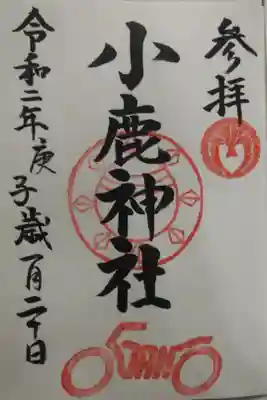 参拝
小鹿神社
令和二年庚子歳一月二十日